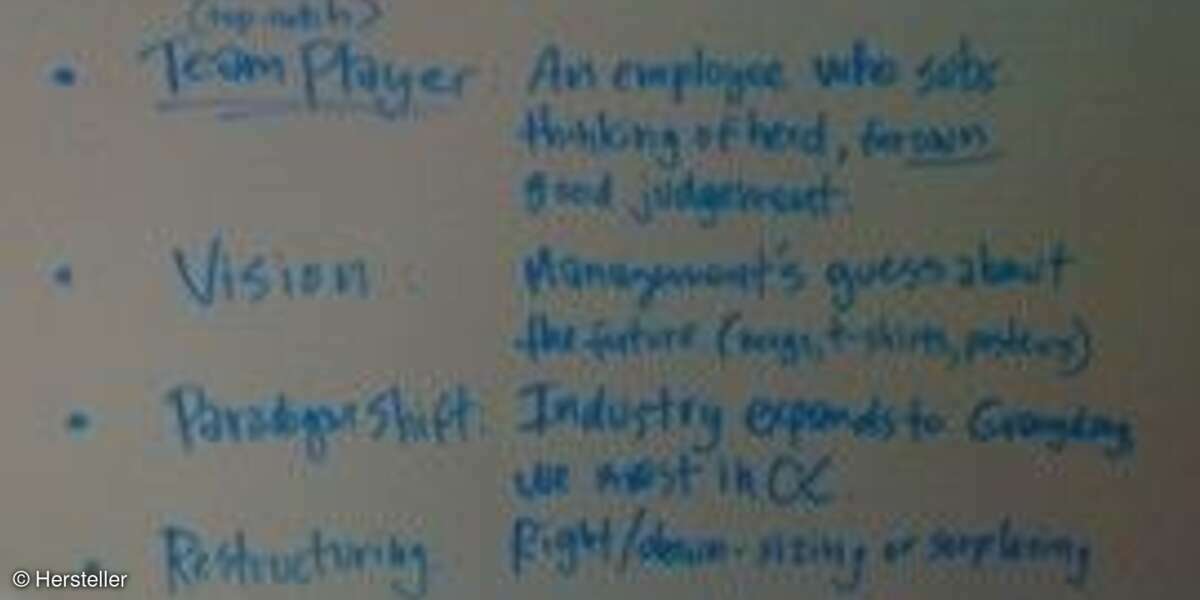 (top-notch)
• Team Player: An employee who subs
thinking of herd, for own
good judgement.
• Vision: Management's guess about
the future (mugs, t-shirts, posters)
• Paradigm Shift: Industry expands to
we invest in
• Restructuring Right/down-sizing or
© Hersteller